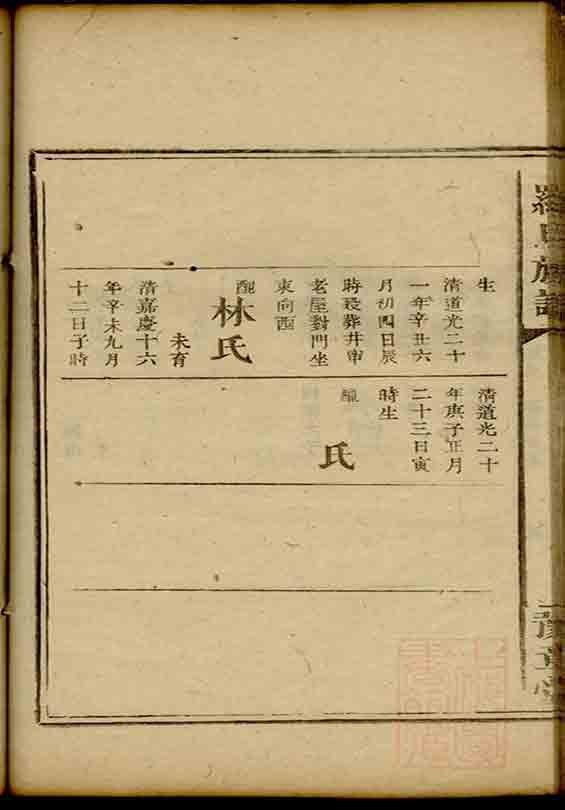 羅氏族譜
生
清道光二十
一年辛丑六
月初四日辰
時歿葬井甲
老屋對門坐
東向西
配
林氏
未育
清嘉慶十六
年辛未九月
十二日子時
清道光二十
年庚子正月
二十三日寅
時生
氏